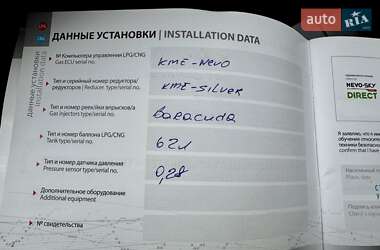 auto RIA.com
ДАННЫЕ УСТАНОВКИ | INSTALLATION DATA
данные установки
installation data
№ Компьютера управления LPG/CNG
Gas ECU/serial no.
KME-Nevo
Тип и серийный номер редуктора/
редукторов / Reducer type/serial no.
KME-Silver
Тип и номер рейк/йки впрыска/ов
Gas injectors type/serial no.
baracuda
Тип и номер баллона LPG/CNG
Tank type/serial no.
62л
Тип и номер датчика давления
Pressure sensor type/serial no.
0,28
Дополнительное оборудование
Additional equipment
№ свидетельства
NEVO-SKY
DIRECT
Я заявляю, что я имею
обучения относительно
техники безопасности
confirm that I have
Населенный
Place, date